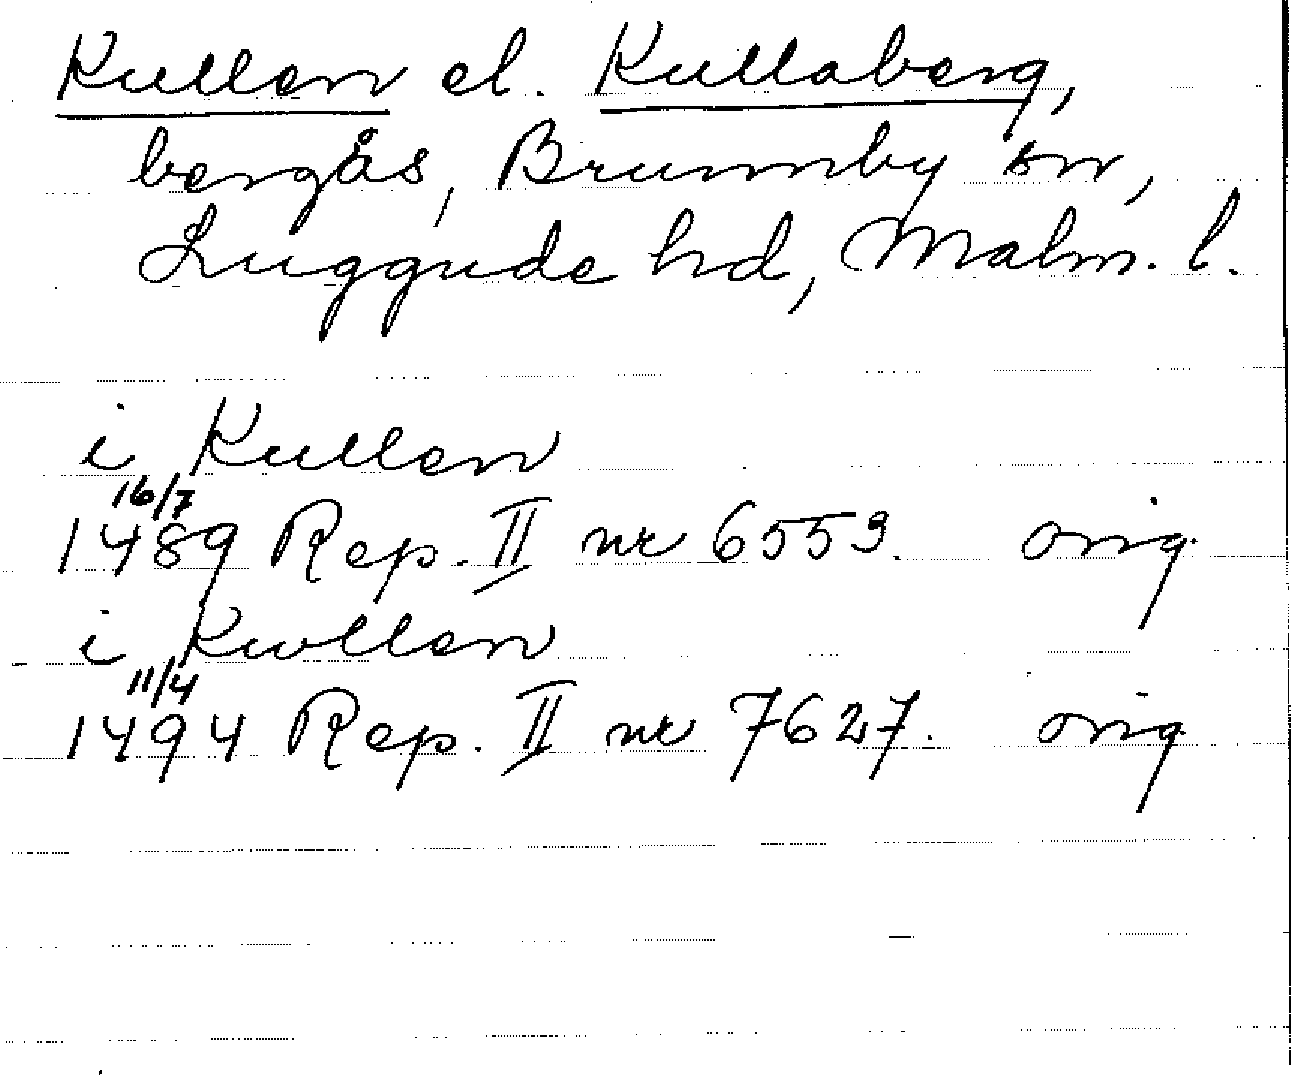 Kullen el. Kullaberg,
bergås, Brunnby sn,
Luggude hd, Malm. l.
i Kullen
16/7
1489 Rep. II nr 6559. orig.
i Kwllen
11/4
1494 Rep. II nr 7627. orig